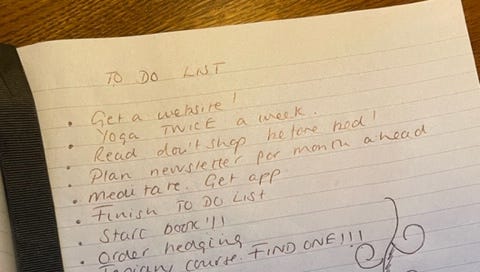 TO DO LIST
• Get a website!
• Yoga TWICE a week.
• Read don't shop before bed!
• Plan newsletter for month ahead
• Meditate. Get app
• Finish TO DO LIST
• Start book!!!
• Order hedging
course. FIND ONE!!!